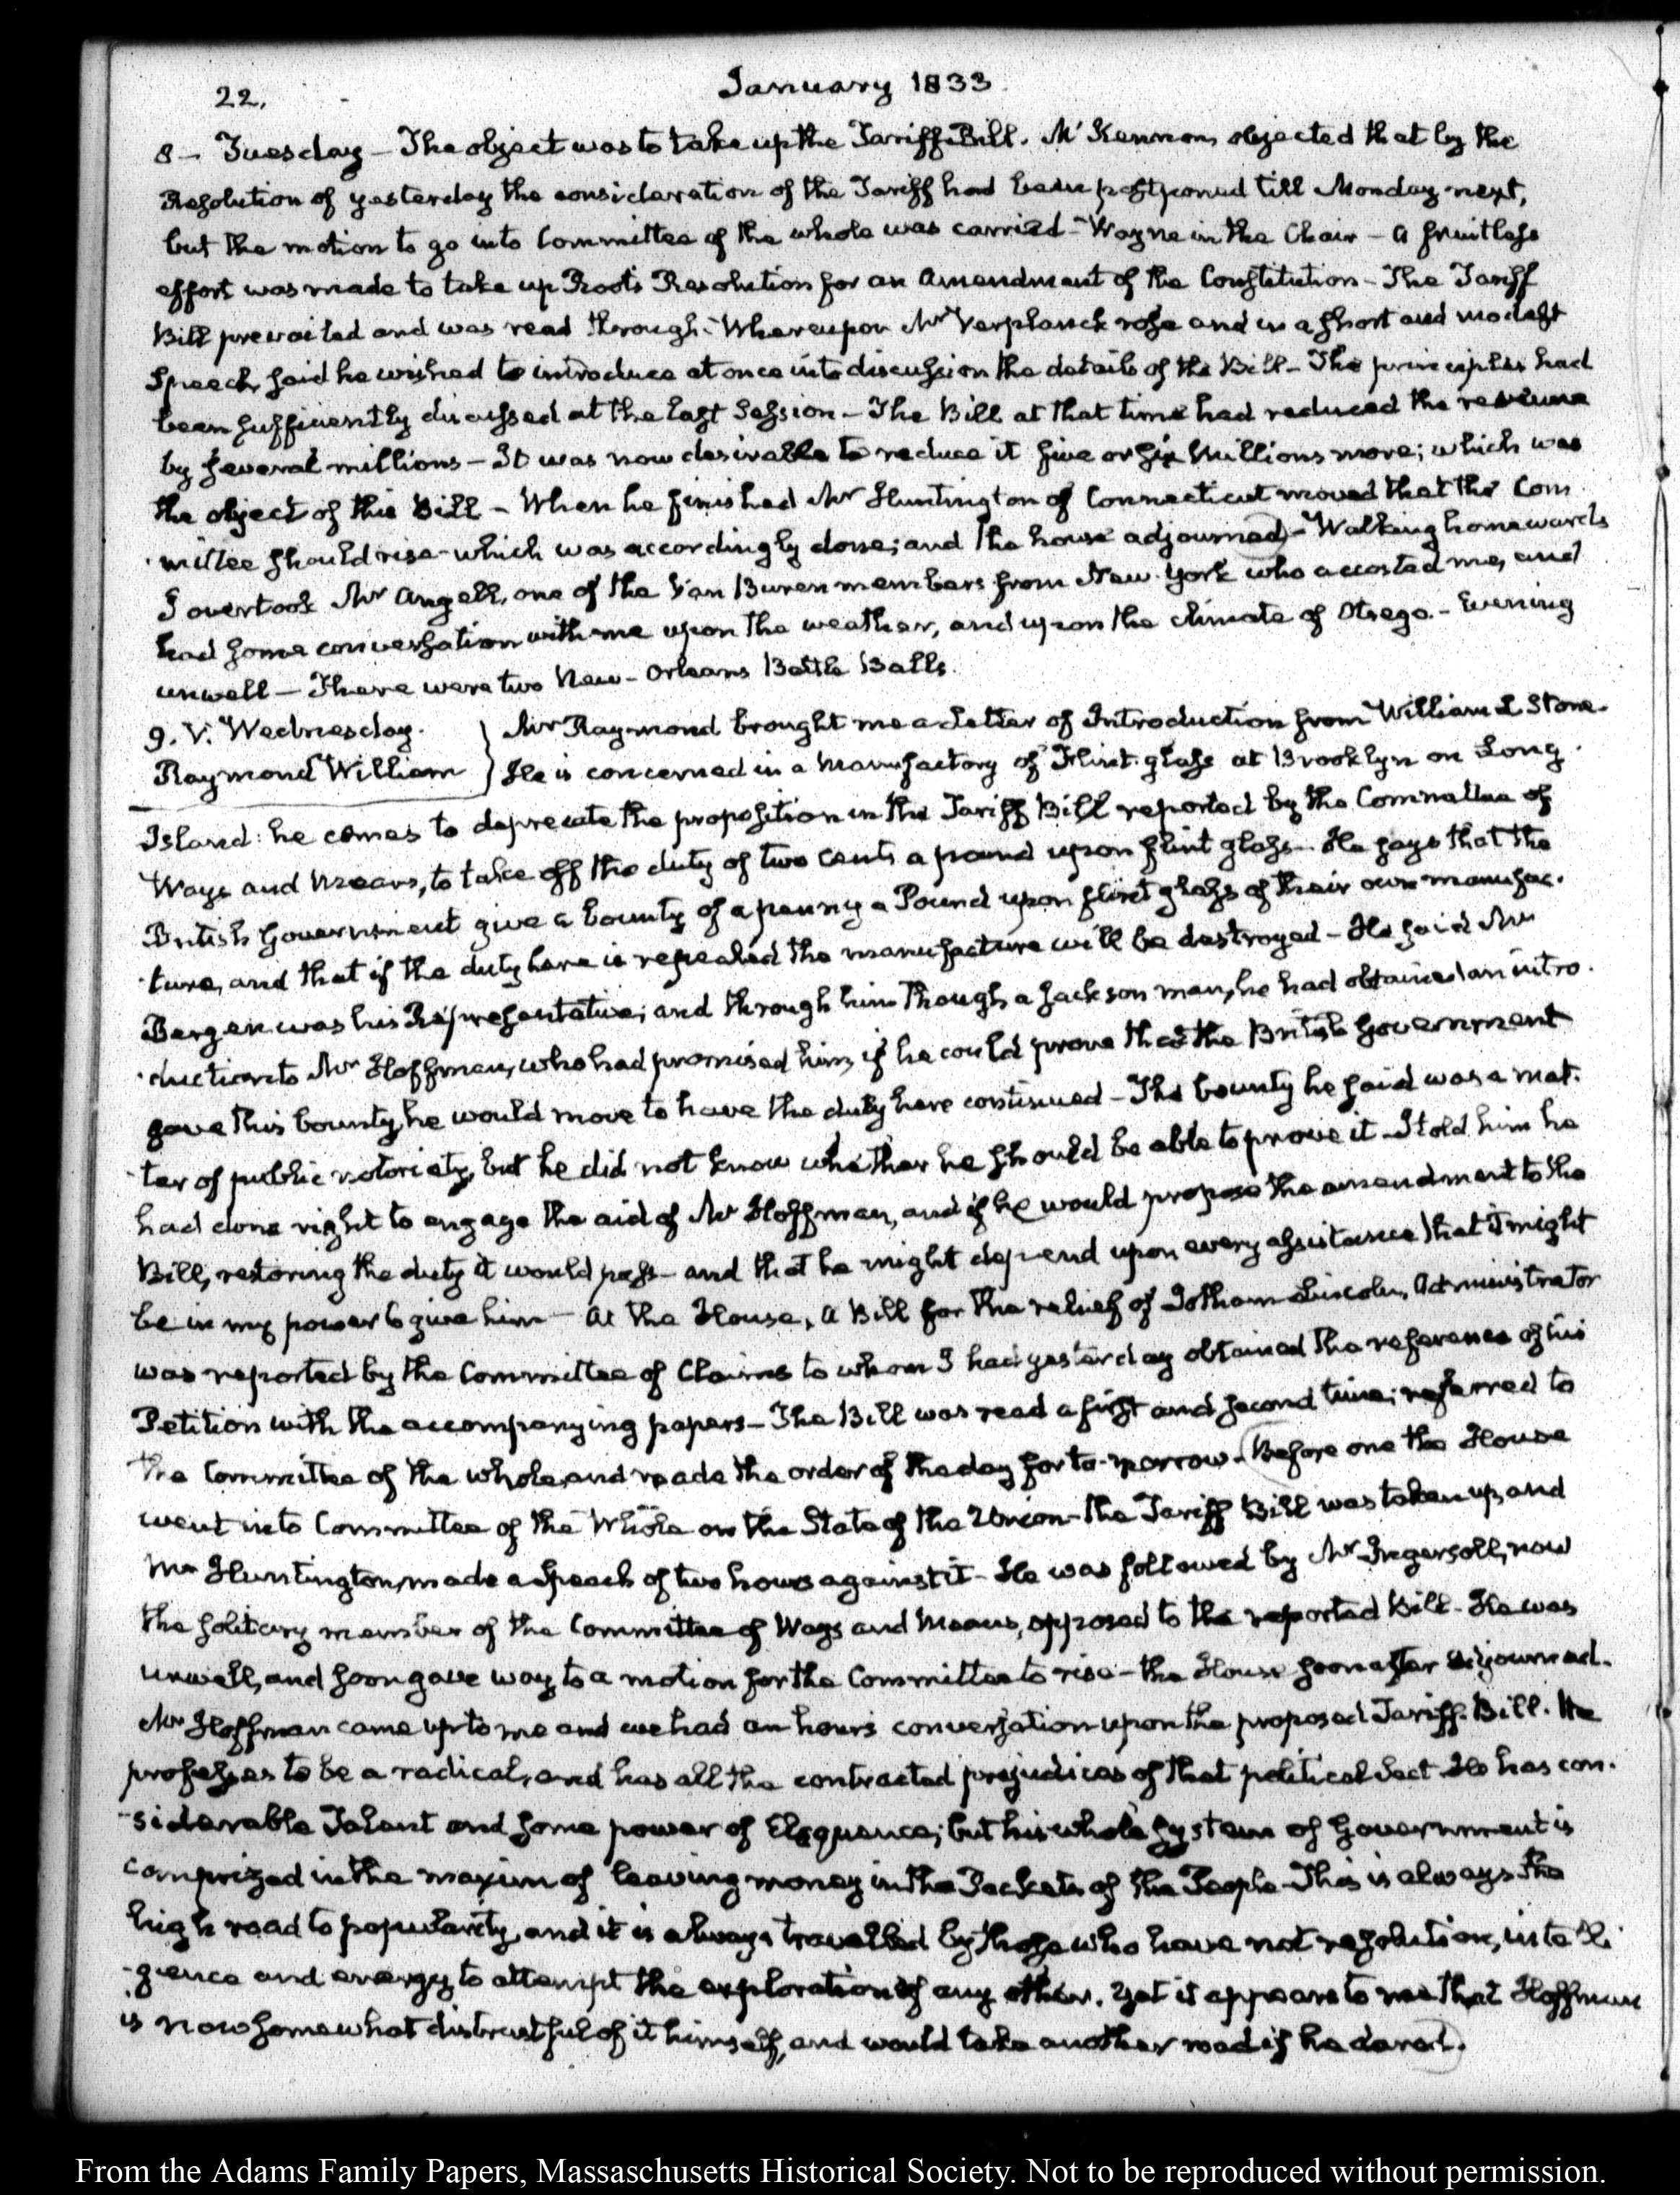 22.
January 1833.
8 – Tuesday – The object was to take up the Tariff Bill. McKennon, objected that by the
Resolution of yesterday the consideration of the Tariff had been postponed till Monday next,
but the motion to go into Committee of the whole was carried – Wayne in the Chair – a fruitless
effort was made to take up Root's Resolution for an Amendment of the Constitution – The Tariff
Bill prevailed and was read through. Whereupon Mr Verplanck rose and in a short and modest
Speech, said he wished to introduce at once into discussion the details of the Bill – The principles had
been sufficiently discussed at the last Session – The Bill at that time had reduced the revenue
by several millions – It was now desirable to reduce it five or six Millions more; which was
the object of this Bill – When he finished Mr Huntington of Connecticut moved that the Com
mittee should rise – which was accordingly done; and the house adjourned – Walking homewards
I overtook Mr Angell, one of the Van Buren members from New-York who accosted me, and
had some conversation with me upon the weather, and upon the climate of Otsego. – Evening
unwell – There were two New-Orleans Battle Balls.
9. V. Wednesday.
Raymond William
Mr Raymond brought me a Letter of Introduction from William L Stone.
He is concerned in a Manufactory of Flint glass at Brooklyn on Long
Island: he comes to deprecate the proposition in the Tariff Bill reported by the Committee of
Ways and Means, to take off the duty of two cents a pound upon flint glass – He says that the
British Government give a bounty of a penny a Pound upon flint glass of their own manufac-
-ture, and that if the duty here is repealed the manufacture will be destroyed – He said Mr
Bergen was his Representative; and through him though a Jackson man, he had obtained an intro-
-duction to Mr Hoffman, who had promised him, if he could prove that the British Government
gave this bounty, he would move to have the duty here continued – The bounty he said was a mat-
-ter of public notoriety, but he did not know whether he should be able to prove it – I told him he
had done right to engage the aid of Mr Hoffman, and if he would propose the amendment to the
Bill, restoring the duty it would pass – and that he might depend upon every assistance that it might
be in my power to give him – At the House, a Bill for the relief of Jotham Lincoln, Administrator
was reported by the Committee of Claims to whom I had yesterday obtained the reference of his
Petition with the accompanying papers – The Bill was read a first and second time; referred to
the Committee of the whole, and made the order of the day for to-morrow. Before one the House
went into Committee of the Whole on the State of the Union – the Tariff Bill was taken up and
Mr Huntington, made a Speech of two hours against it – He was followed by Mr Ingersoll, now
the solitary member of the Committee of Ways and Means, opposed to the reported Bill – He was
unwell, and soon gave way to a motion for the Committee to rise – the House soon after adjourned.
Mr Hoffman came up to me and we had an hour's conversation upon the proposed Tariff Bill. He
professes to be a radical, and has all the contracted prejudices of that political Sect. He has con-
-siderable Talent and some power of Eloquence; but his whole system of Government is
comprized in the maxim of leaving money in the Pockets of the People – This is always the
high road to popularity, and it is always travelled by those who have not resolution, intelli
-gence and energy to attempt the exploration of any other. Yet it appears to me that Hoffman
is now somewhat distrustful of it himself, and would take another road if he dared.
From the Adams Family Papers, Massaschusetts Historical Society. Not to be reproduced without permission.